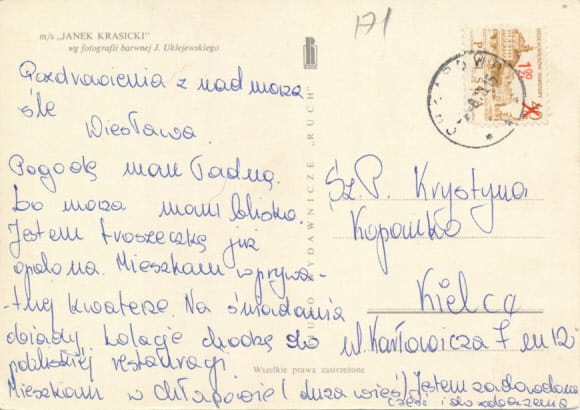 m/s „JANEK KRASICKI"
wg fotografii barwnej J. Uklejewskiego
171
Pozdrowienia z nad morza
śle
Wiesława.
Pogodę mam ładną.
Do morza mam blisko.
Jestem troszeczkę już
opalona. Mieszkam w prywa-
-tnej kwaterze. Na śniadania
obiady, kolacje chodzę do
pobliskiej restauracji.
Mieszkam w Chłapowie (duża wieś) Jestem zadowolona
Cześć i do zobaczenia
RUCH"
WYDAWNICZE
Wszelkie prawa zastrzeżone
100
40
Sz.P. Krystyna
Kopamko
Kielce
ul. Karłowicza 7 m 12